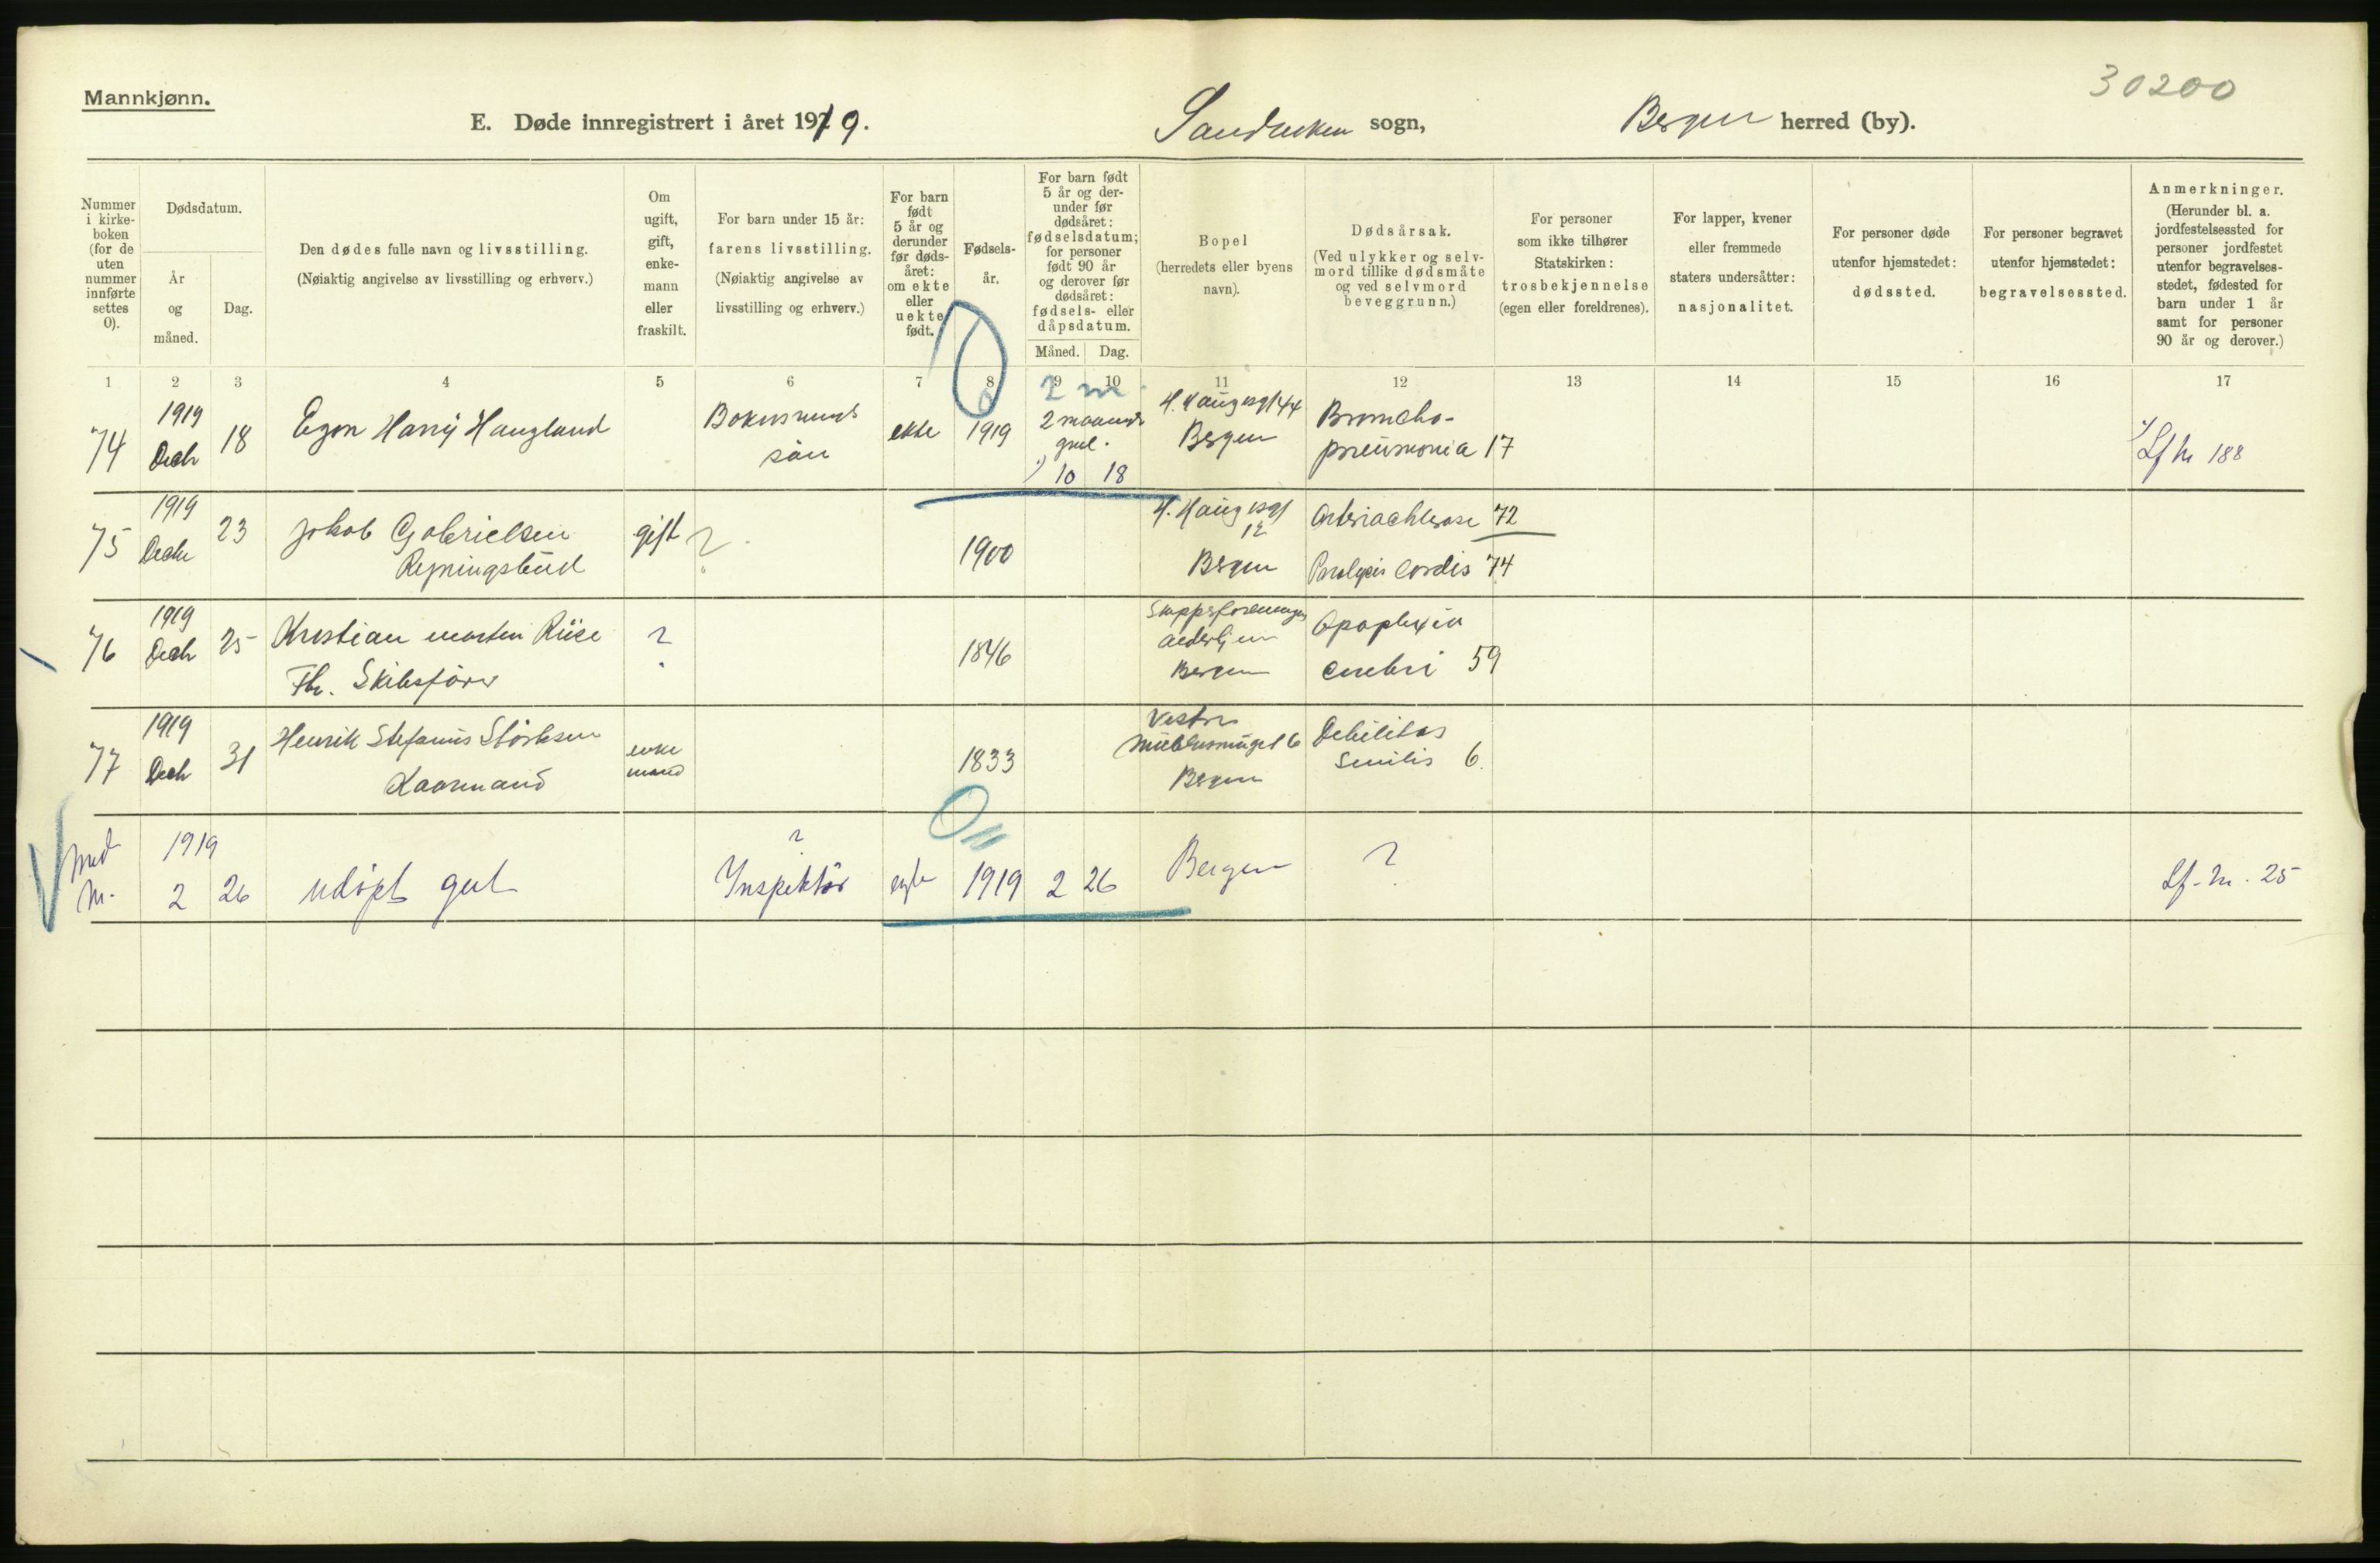 30200
Mannkjønn.
E. Døde innregistrert i året 1919.
Sandviken sogn,
Bergen herred (by).
Nummer i kirke- boken (for de uten nummer innførte settes 0).
Dødsdatum.
År og måned.
Dag.
Den dødes fulle navn og livsstilling.
(Nøiaktig angivelse av livsstilling og erhverv.)
Om ugift, gift, enke- mann eller fraskilt.
For barn under 15 år: farens livsstilling.
(Nøiaktig angivelse av livsstilling og erhverv.)
For barn født 5 år og derunder før døds- året: om ekte eller uekte født.
Fødsels- år.
For barn født 5 år og der- under før dødsåret: fødselsdatum; for personer født 90 år og derover før dødsåret: fødsels- eller dåpsdatum.
Måned. Dag.
Bopel
(herredets eller byens navn).
Dødsårsak.
(Ved ulykker og selv- mord tillike dødsmåte og ved selvmord beveggrunn.)
For personer som ikke tilhører Statskirken: trosbekjennelse (egen eller foreldrenes).
For lapper, kvener eller fremmede staters undersåtter: nasjonalitet.
For personer døde utenfor hjemstedet: dødssted.
For personer begravet utenfor hjemstedet: begravelsessted.
Anmerkninger.
(Herunder bl. a. jordfestelsessted for personer jordfestet utenfor begravelses- stedet, fødested for barn under 1 år samt for personer 90 år og derover.)
1 2 3 4 5 6 7 8 9 10 11 12 13 14 15 16 17
0 2 m
74 1919 Decb 18 Egon Harry Haugland
ekte 1919 2 maaneder gml. 10 18
44 Bergen
Broncho- pneumonia 17
Lf nr 188
75 1919 Decbr 23 Jakob Gabrielsen
Regningsbud
gift ? 1900
12 Bergen
72
Paralysis Cordis 74
76 1919 Decb 25 Kristian Morten Riise
Fhv. Skibsfører
? 1846
Bergen
Apoplexia cerebri 59
77 1919 Decb 31 Henrik Stefanus Störksen
enke mand 1833
Vestre 6
Bergen
Debilitas senilis 6.
0
1919 2 26 udöpt gut
? Inspektör egte 1919 2 26 Bergen ?
Lf. nr. 25